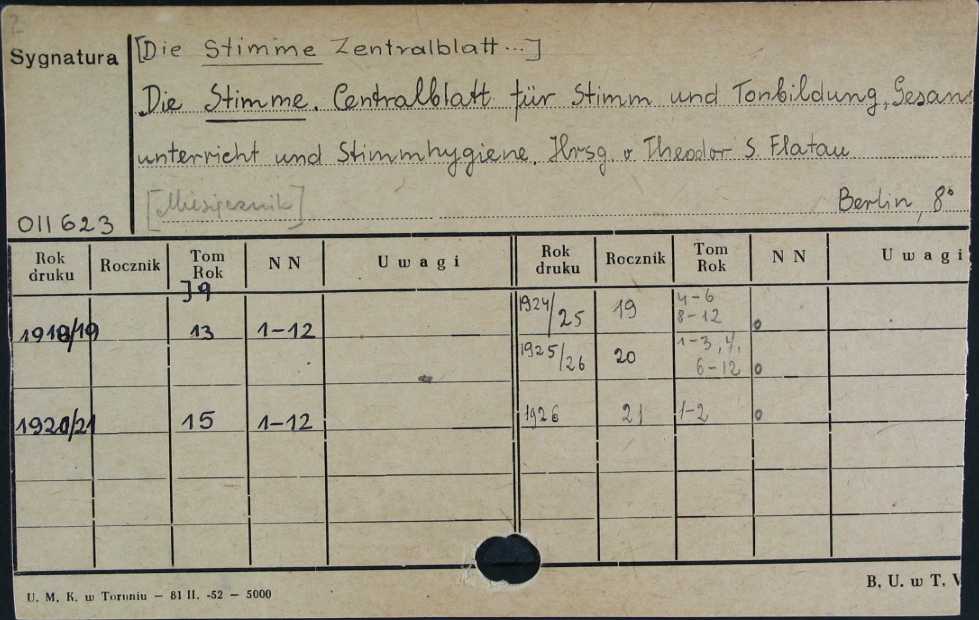 [Die Stimme Zentralblatt...]
Sygnatura
Die Stimme. Centralblatt für Stimm und Tonbildung, Gesan
unterricht und Stimmhygiene. Hrsg. v Theodor S. Flatau
[Miesięcznik]
Berlin, 8°
011623
Rok druku Rocznik Tom Rok NN Uwagi Rok druku Rocznik Tom Rok NN Uwagi
J9
1918/19 13 1-12 1924/25 19 4-6 8-12 o
1925/26 20 1-3, 4, 6-12 o
1920/21 15 1-12 1926 21 1-2 o
U. M. K. w Toruniu — 81 II. -52 — 5000
B. U. w T. V